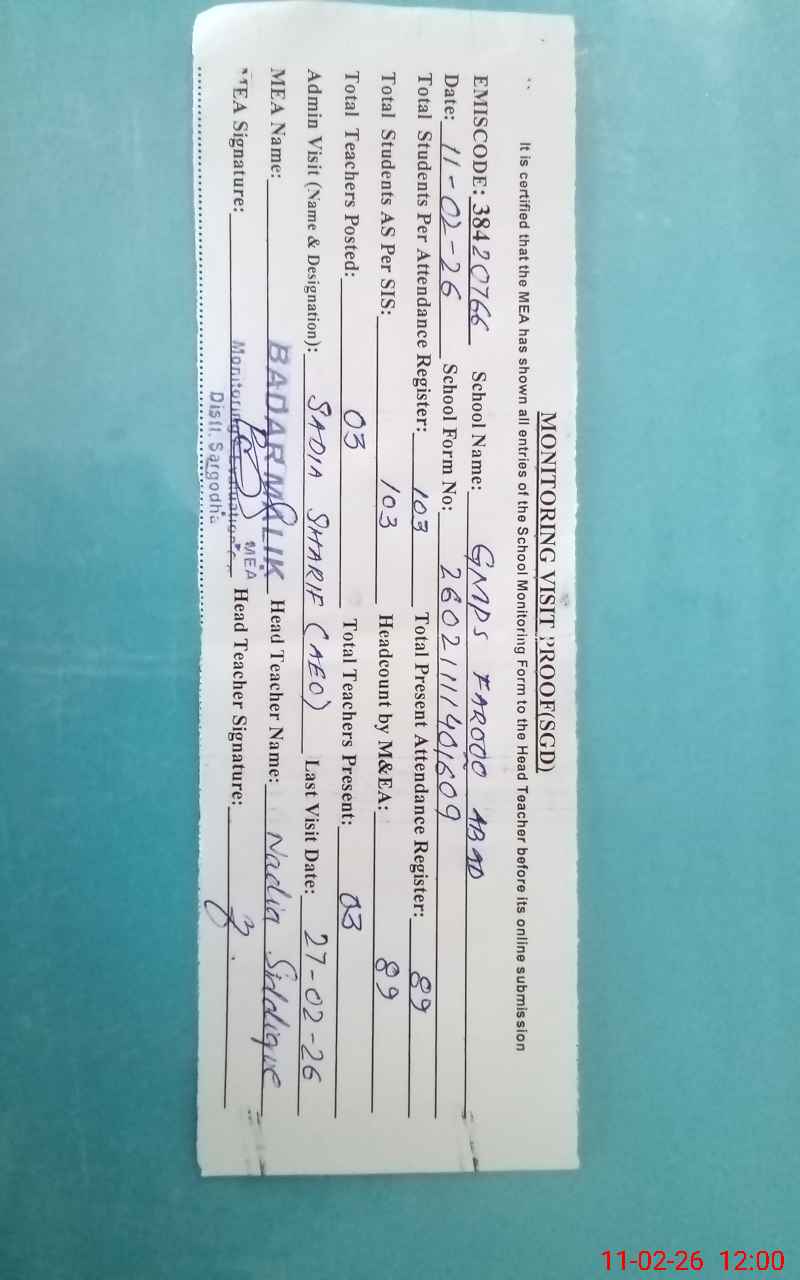 MONITORING VISIT PROOF(SGD)
It is certified that the MEA has shown all entries of the School Monitoring Form to the Head Teacher before its online submission
EMISCODE: 38420766 School Name: GMPS FAROOQ ABAD
Date: 11-02-26 School Form No: 260211111401609
Total Students Per Attendance Register: 103 Total Present Attendance Register: 89
Total Students AS Per SIS: 103 Headcount by M&EA: 89
Total Teachers Posted: 03 Total Teachers Present: 03
Admin Visit (Name & Designation): SADIA SHARIF (AEO) Last Visit Date: 27-02-26
MEA Name: BADAR MALIK Head Teacher Name: Nadia Siddique
MEA Signature: MEA Head Teacher Signature:
Monitoring
Distt. Sargodha
11-02-26 12:00